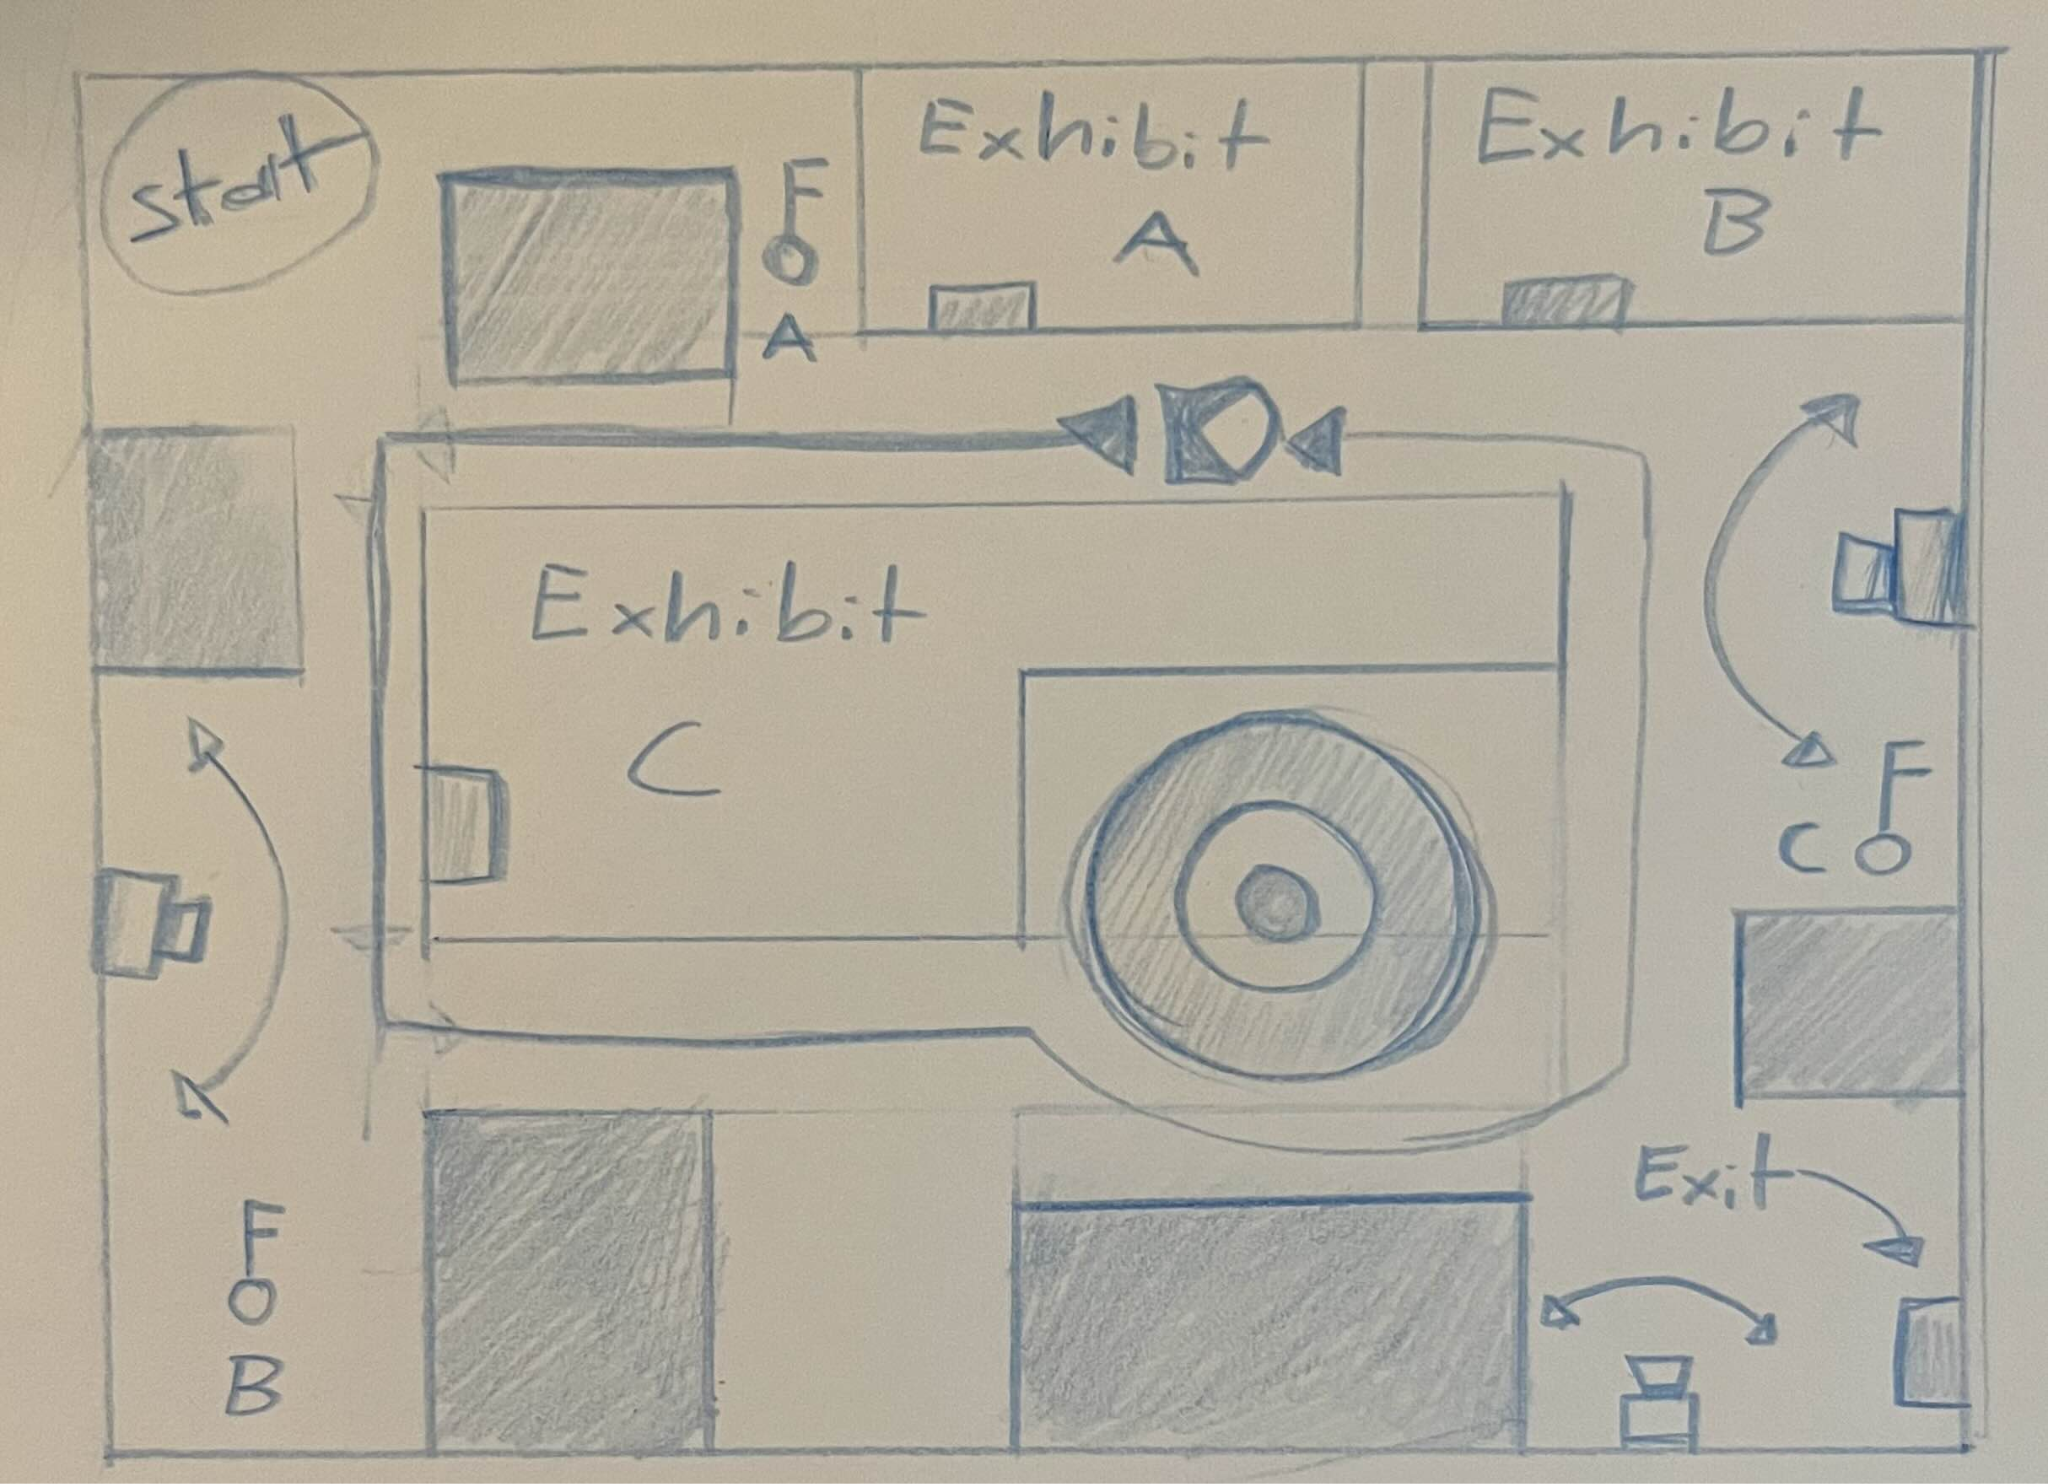 start
Exhibit
A
Exhibit
B
A
Exhibit
C
C
Exit
B